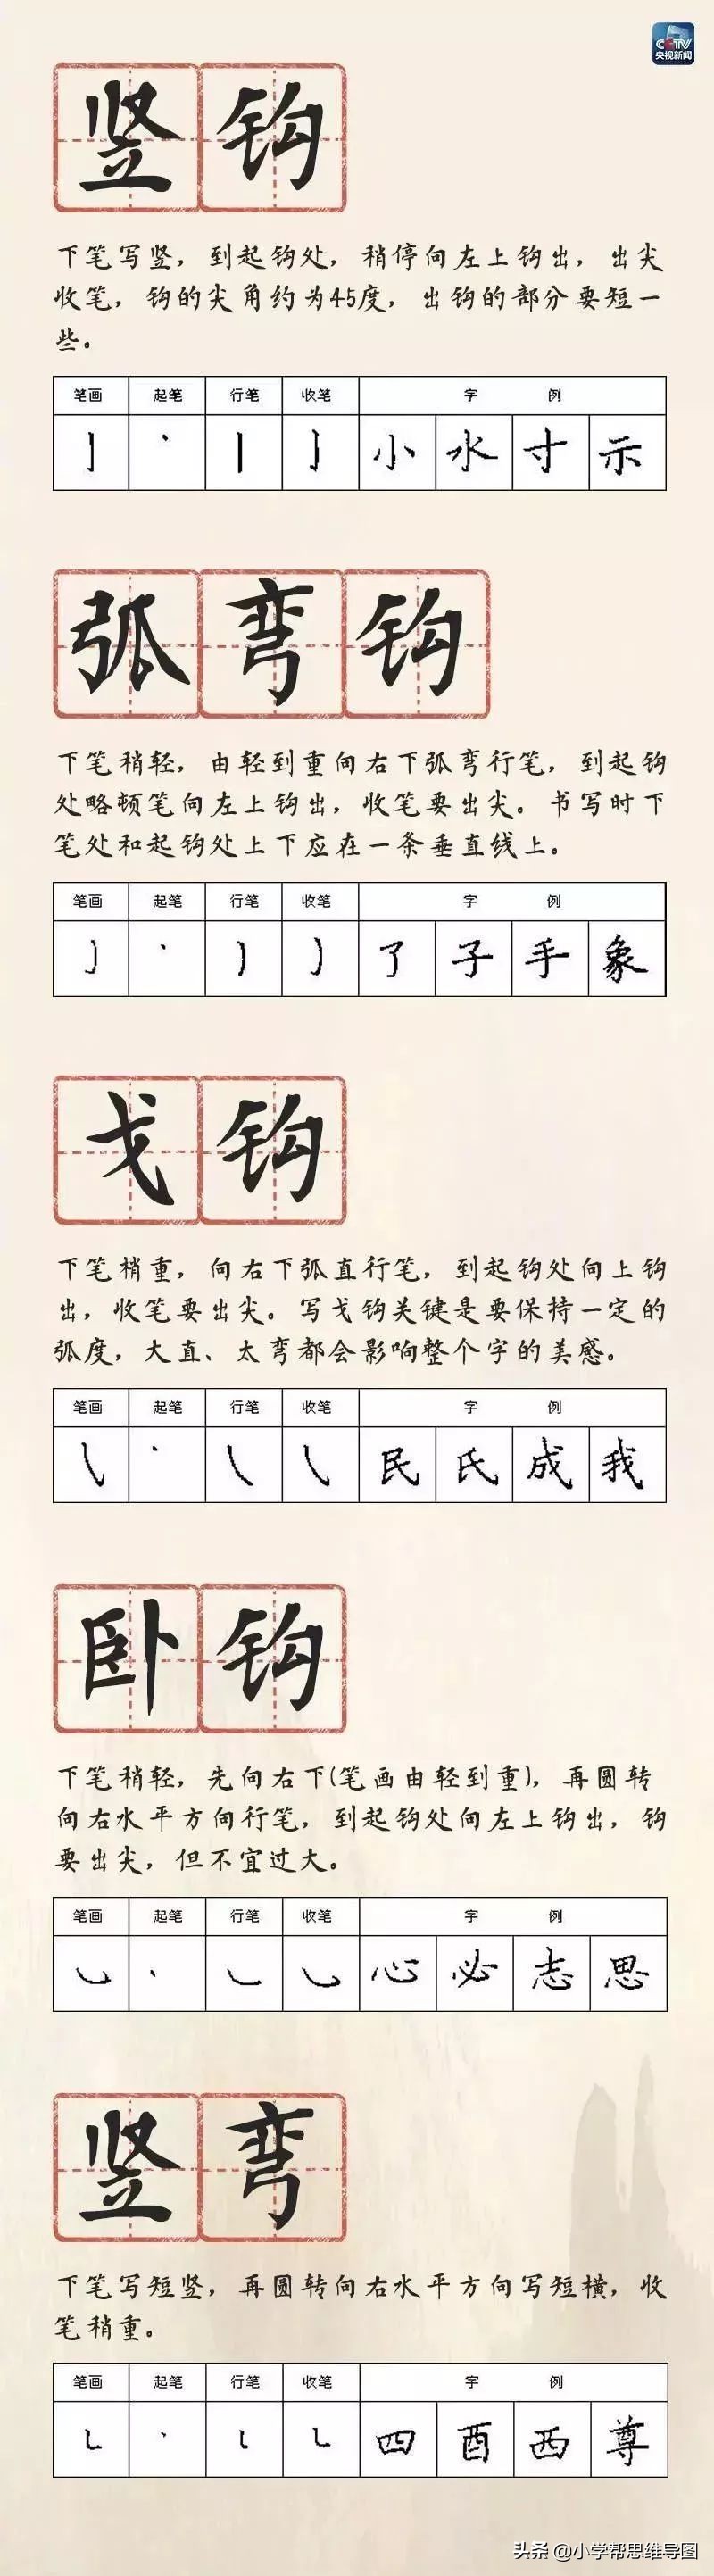 CCTV
央视新闻
竖钩
下笔写竖，到起钩处，稍停向左上钩出，出尖
收笔，钩的尖角约为45度，出钩的部分要短一
些。
笔画 起笔 行笔 收笔 字 例
小 水 寸 示
弧弯钩
下笔稍轻，由轻到重向右下弧弯行笔，到起钩
处略顿笔向左上钩出，收笔要出尖。书写时下
笔处和起钩处上下应在一条垂直线上。
笔画 起笔 行笔 收笔 字 例
了 子 手 象
戈钩
下笔稍重，向右下弧直行笔，到起钩处向上钩
出，收笔要出尖。写戈钩关键是要保持一定的
弧度，大直、太弯都会影响整个字的美感。
笔画 起笔 行笔 收笔 字 例
民 氏 成 我
卧钩
下笔稍轻，先向右下(笔画由轻到重)，再圆转
向右水平方向行笔，到起钩处向左上钩出，钩
要出尖，但不宜过大。
笔画 起笔 行笔 收笔 字 例
心 必 志 思
竖弯
下笔写短竖，再圆转向右水平方向写短横，收
笔稍重。
笔画 起笔 行笔 收笔 字 例
四 酉 西 尊
头条 @小学帮思维导图